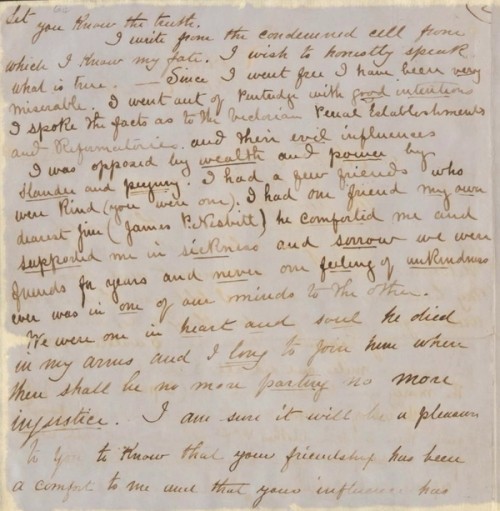 let you know the truth.
I write from the condemned cell from
which I know my fate. I wish to honestly speak
what is true. — Since I went free I have been very
miserable. I went out of Pentridge with good intentions
I spoke the facts as to the Victorian Penal Establishments
and Reformatories. and their evil influences
I was opposed by wealth and power by
slander and perjury. I had a few friends who
were kind (you were one). I had one friend my own
dearest Jim (James P. Nesbitt) he comforted me and
supported me in sickness and sorrow we were
friends for years and never one feeling of unkindness
ever was in one of our minds to the other.
We were one in heart and soul he died
in my arms and I long to join him where
there shall be no more parting no more
injustice. I am sure it will be a pleasure
to you to know that your friendship has been
a comfort to me and that your influence has